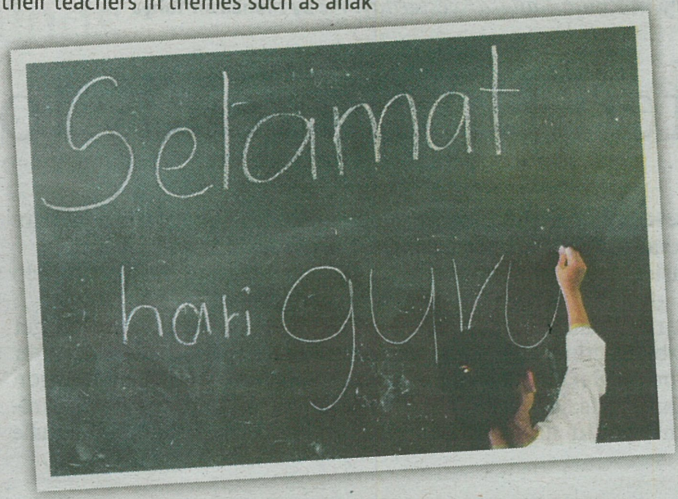 their teachers in themes such as anak
Selamat
hari guru